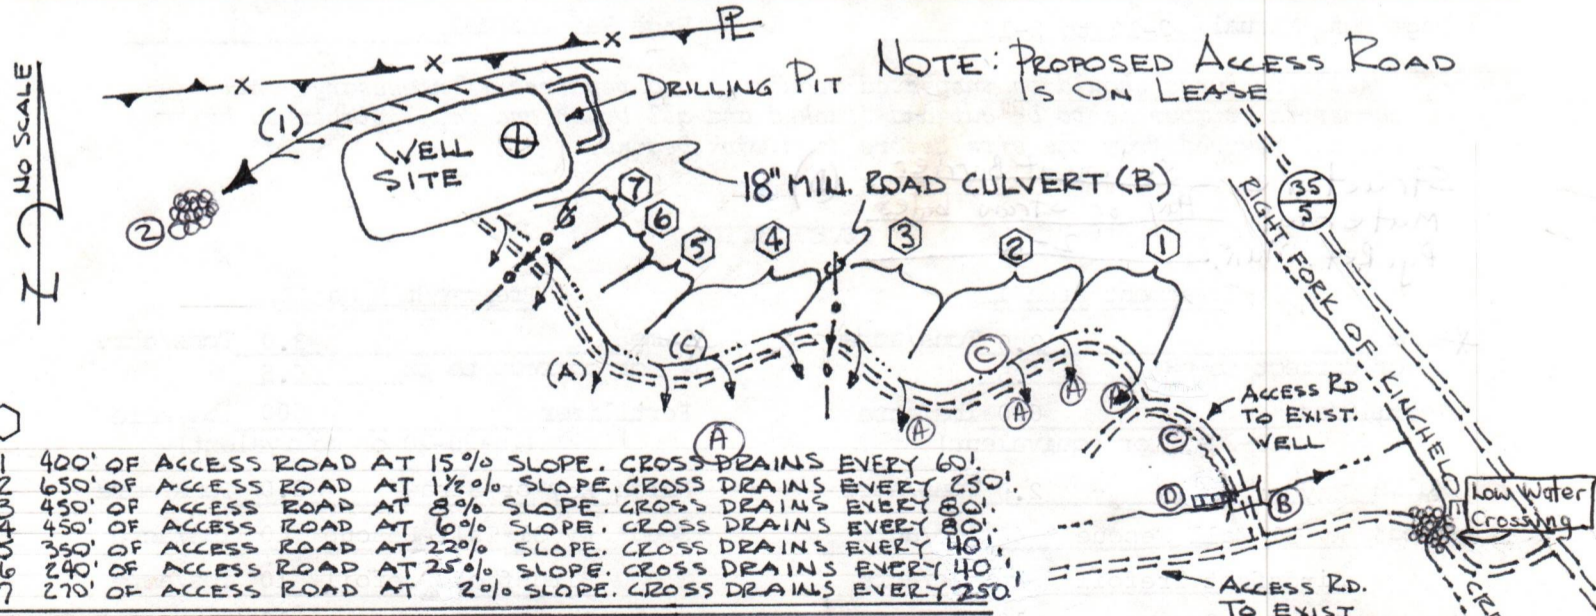 PL
NOTE: PROPOSED ACCESS ROAD
IS ON LEASE
NO SCALE
N
DRILLING PIT
(1)
WELL
SITE
2
18" MIN. ROAD CULVERT (B)
35
5
7
6
5
4
3
2
1
RIGHT FORK OF KINCHELO
(A)
(C)
C
A
A
A
A
A
ACCESS RD
TO EXIST.
WELL
C
D
B
Low Water
Crossing
1 400' OF ACCESS ROAD AT 15% SLOPE. CROSS DRAINS EVERY 60'.
2 650' OF ACCESS ROAD AT 1½% SLOPE. CROSS DRAINS EVERY 250'.
3 450' OF ACCESS ROAD AT 8% SLOPE. CROSS DRAINS EVERY 80'.
4 450' OF ACCESS ROAD AT 6% SLOPE. CROSS DRAINS EVERY 80'.
5 350' OF ACCESS ROAD AT 22% SLOPE. CROSS DRAINS EVERY 40'.
6 240' OF ACCESS ROAD AT 25% SLOPE. CROSS DRAINS EVERY 40'.
7 270' OF ACCESS ROAD AT 2% SLOPE. CROSS DRAINS EVERY 250'
ACCESS RD.
TO EXIST